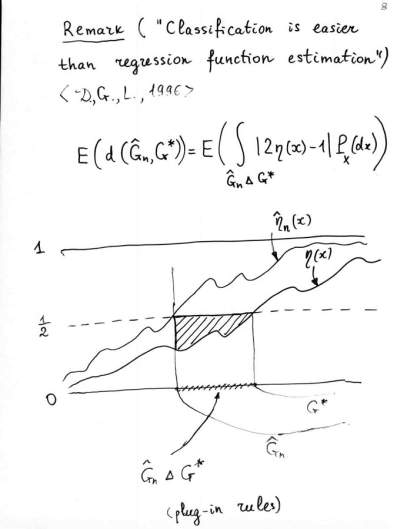 8
Remark ( "Classification is easier
than regression function estimation")
<~D, G., L., 1996>
E(d(Ĝₙ, G*)) = E( ∫_{Ĝₙ Δ G*} |2η(x)-1| P_x(dx))
η̂ₙ(x)
1
η(x)
1/2
0
G*
Ĝₙ
Ĝₙ Δ G*
(plug-in rules)